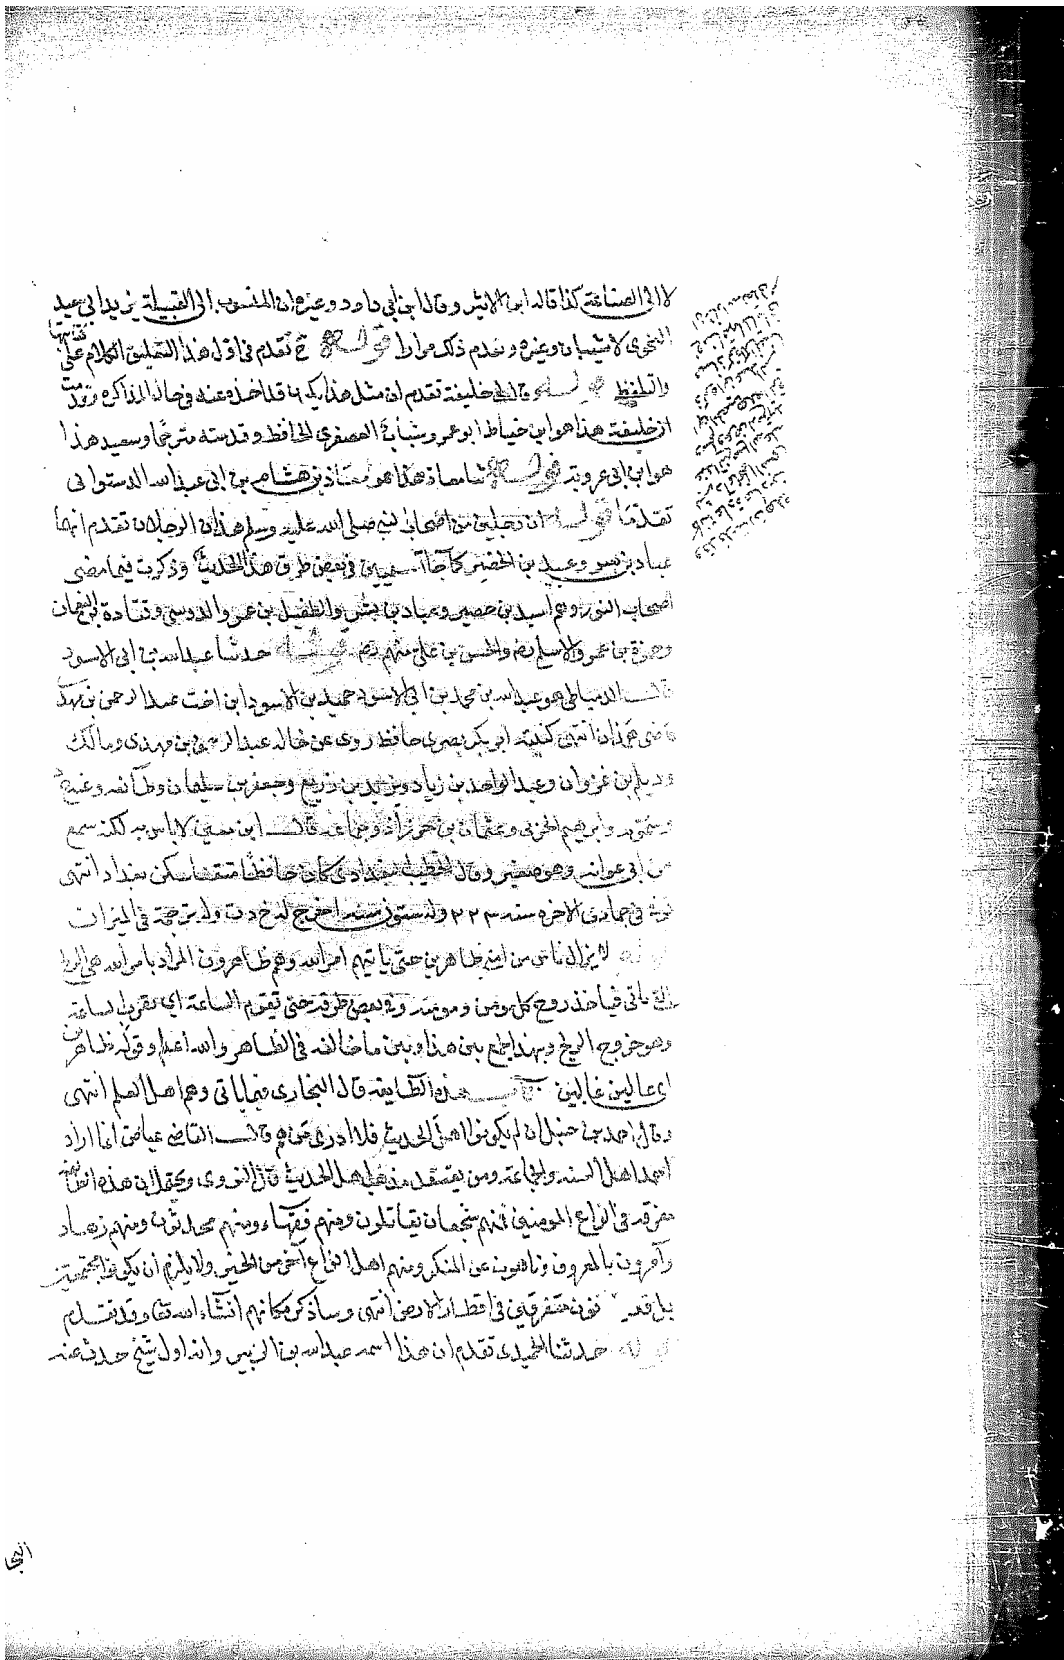 لا الى الصناعة كذا قاله ابن الاثير وقال ابن ابي داود وغيره ان المنسوب الى القبيلة يزيد ابي سعيد
النحوي لا شيبان وغيره وتقدم ذلك مرارا قوله ح تقدم في اول هذا التعليق الكلام على كتابتها
والتلفظ قوله وقال لي خليفة تقدم ان مثل هذا يكون قد اخذه عنه في حال المذاكرة وتقدمت
ان خليفة هذا هو ابن خياط ابو عمرو شباب العصفري الحافظ وقدمته مترجما وسعيد هذا
هو ابن ابي عروبة قوله ثنا معاذ هذا هو معاذ بن هشام بن ابي عبد الله الدستوائي
تقدما قوله ان رجلين من اصحاب النبي صلى الله عليه وسلم هذان الرجلان تقدم انهما
عباد بن بشر وعبيد بن الحضير كما جاآ مسميين في بعض طرق هذا الحديث وذكرت فيما مضى
اصحاب النور وهم اسيد بن حضير وعباد بن بشر والطفيل بن عمرو الدوسي وقتادة بن النعمان
وحمزة بن عمرو الاسلمي والحسن بن علي منهم قوله حدثنا عبد الله بن ابي الاسود
قال الدمياطي هو عبد الله بن محمد بن ابي الاسود حميد بن الاسود ابن اخت عبد الرحمن بن مهدي
قاضي همذان انتهى كنيته ابو بكر بصري حافظ روى عن خاله عبد الرحمن بن مهدي ومالك
وديلم بن غزوان وعبد الواحد بن زياد ويزيد بن زريع وجعفر بن سليمان وطائفة وعنه خ
د وابرهيم الحربي وعثمان بن خرزاذ وجماعة قال ابن معين لا باس به لكنه سمع
من ابي عوانة وهو صغير وقال الخطيب البغدادي كان حافظا متقنا سكن بغداد انتهى
توفي في جمادى الاخرة سنة ٢٢٣ وله ستون سنة اخرج له خ د ت وله ترجمة في الميزان
قوله لا يزال ناس من امتي ظاهرين حتى ياتيهم امر الله وهم ظاهرون المراد بامر الله هي الريح
التي تاتي فياخذ روح كل مؤمن ومومنة وفي بعض طرقه حتى تقوم الساعة اي تقرب الساعة
وهو خروج الريح وبهذا يجمع بين هذا وبين ما خالفه في الظاهر والله اعلم وقوله ظاهرين
اي عالين غالبين هذه الطايفة قال البخاري فيما ياتي وهم اهل العلم انتهى
وقال احمد بن حنبل ان لم يكونوا اهل الحديث فلا ادري من هم قال القاضي عياض انما اراد
احمد اهل السنة والجماعة ومن يعتقد مذهب اهل الحديث قال النووي ويحتمل ان هذه الطائفة
مفرقة في انواع المومنين فمنهم شجعان يقاتلون ومنهم فقهاء ومنهم محدثون ومنهم زهاد
وآمرون بالمعروف وناهون عن المنكر ومنهم اهل انواع اخرى من الخير ولا يلزم ان يكونوا مجتمعين
بل قد يكونون متفرقين في اقطار الارض انتهى وساذكر مكانهم ان شاء الله تعا وقد تقدم
قوله حدثنا الحميدي تقدم ان هذا اسمه عبد الله بن الزبير وانه اول شيخ حدث عنه